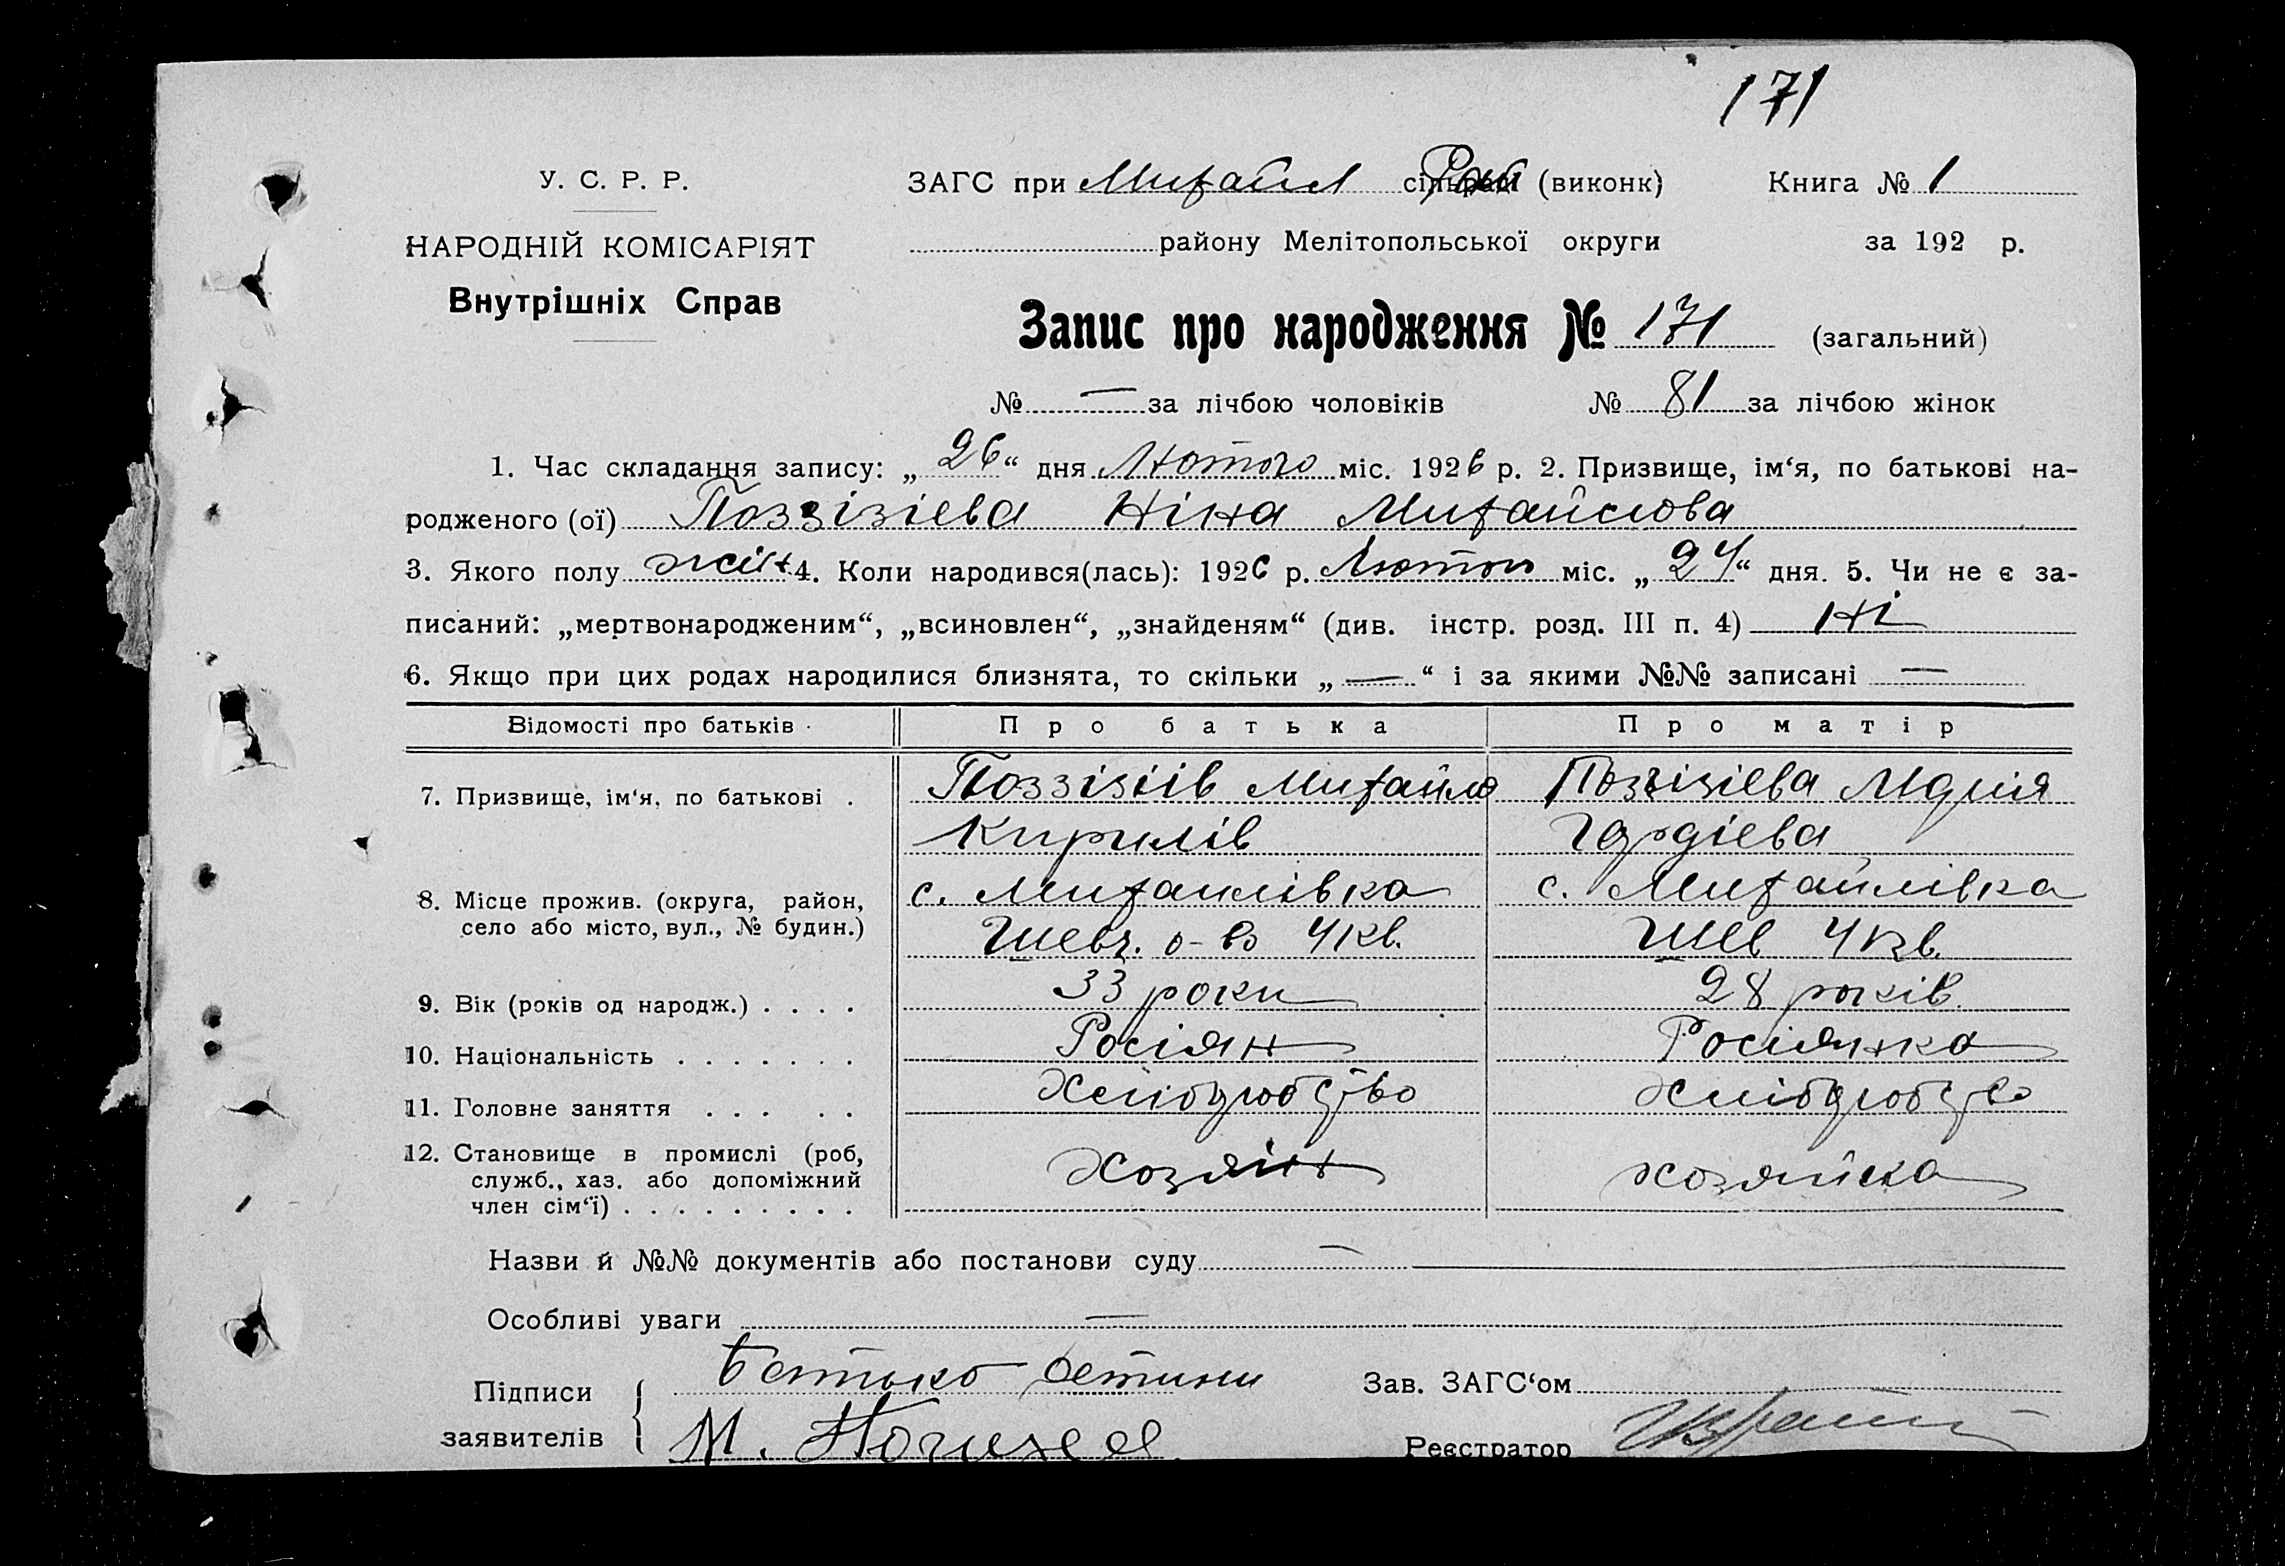 171
У. С. Р. Р.
ЗАГС при Михайл сільраді Рай (виконк) Книга № 1
НАРОДНІЙ КОМІСАРІЯТ
району Мелітопольської округи за 192 р.
Внутрішніх Справ
Запис про народження № 171 (загальний)
№ — за лічбою чоловіків № 81 за лічбою жінок
1. Час складання запису: „26“ дня Лютого міс. 1926 р. 2. Призвище, ім‘я, по батькові на-
родженого (ої) Поззізієва Ніна Михайлова
3. Якого полу жін 4. Коли народився(лась): 1926 р. Лютого міс. „24“ дня. 5. Чи не є за-
писаний: „мертвонародженим“, „всиновлен“, „знайденям“ (див. інстр. розд. III п. 4) ні
6. Якщо при цих родах народилися близнята, то скільки „—“ і за якими №№ записані —
Відомості про батьків Про батька Про матір
7. Призвище, ім‘я, по батькові . Поззізіїв Михайло Поззізієва Марія
Кирилів Гордієва
8. Місце прожив. (округа, район, с. Михайлівка с. Михайлівка
село або місто, вул., № будин.) Шевч. о-во 4 кв. Шев 4 кв.
9. Вік (років од народж.) . . . . 33 роки 28 років
10. Національність . . . . . . . Росіян Росіянка
11. Головне заняття . . . . . Хліборобство Хліборобство
12. Становище в промислі (роб, Хозяїн хозяйка
служб., хаз. або допоміжний
член сім‘ї) . . . . . . . . .
Назви й №№ документів або постанови суду —
Особливі уваги —
Підписи Батько дитини Зав. ЗАГС‘ом
заявителів М. Реєстратор